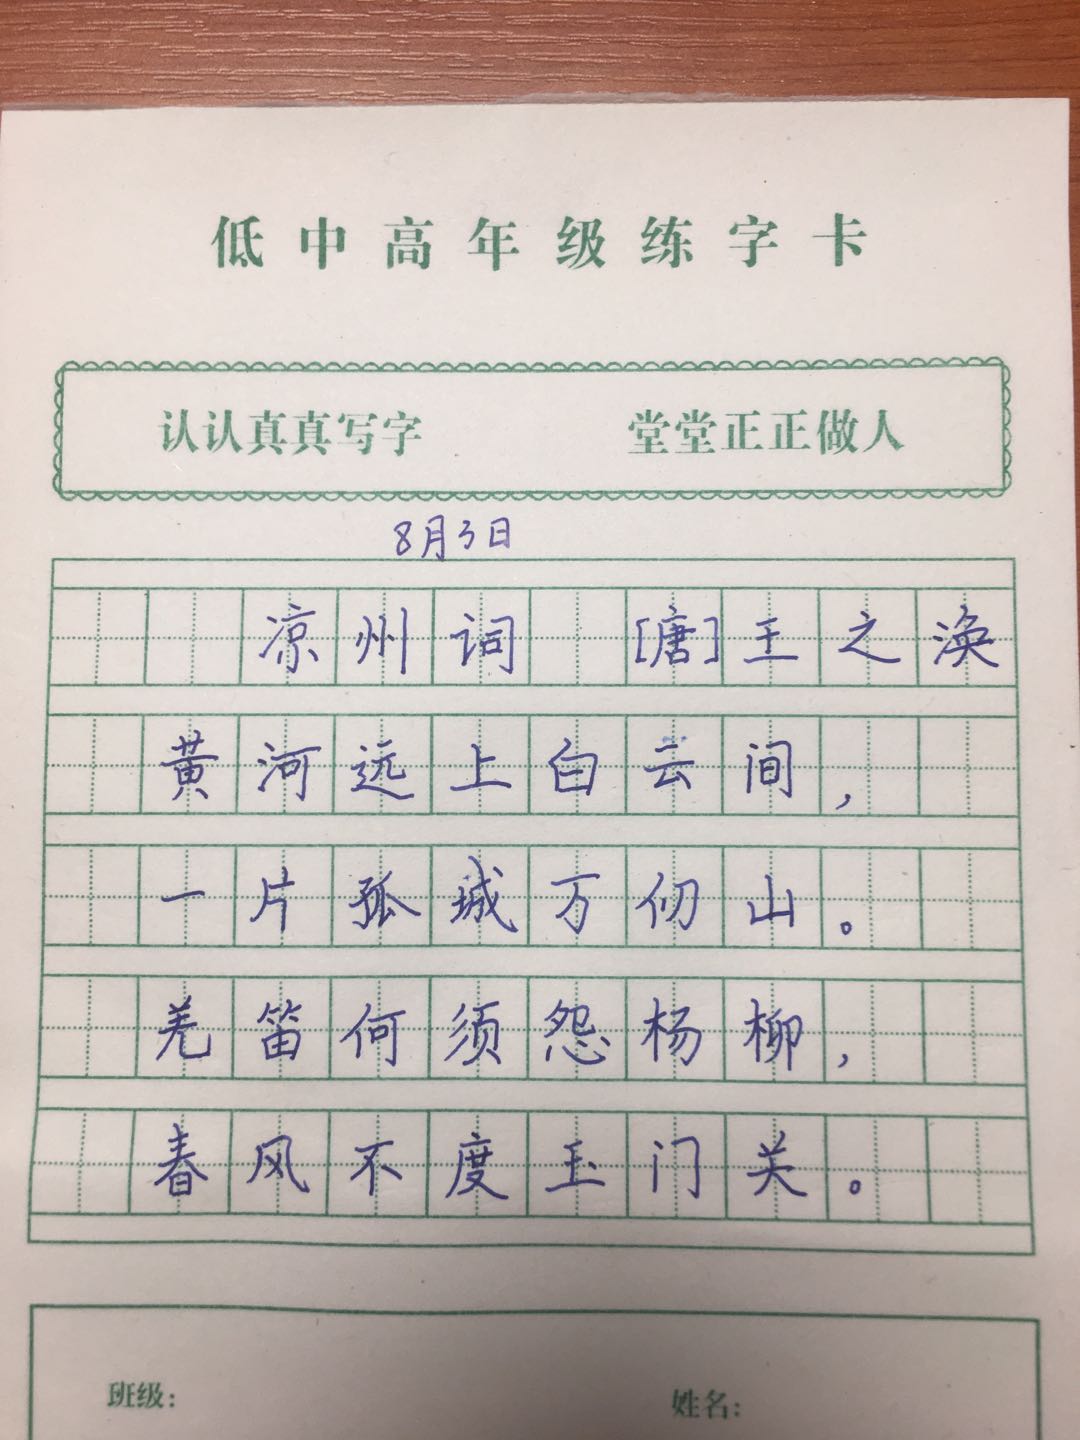 低中高年级练字卡
认认真真写字 堂堂正正做人
8月3日
凉州词 [唐]王之涣
黄河远上白云间，
一片孤城万仞山。
羌笛何须怨杨柳，
春风不度玉门关。
班级： 姓名：